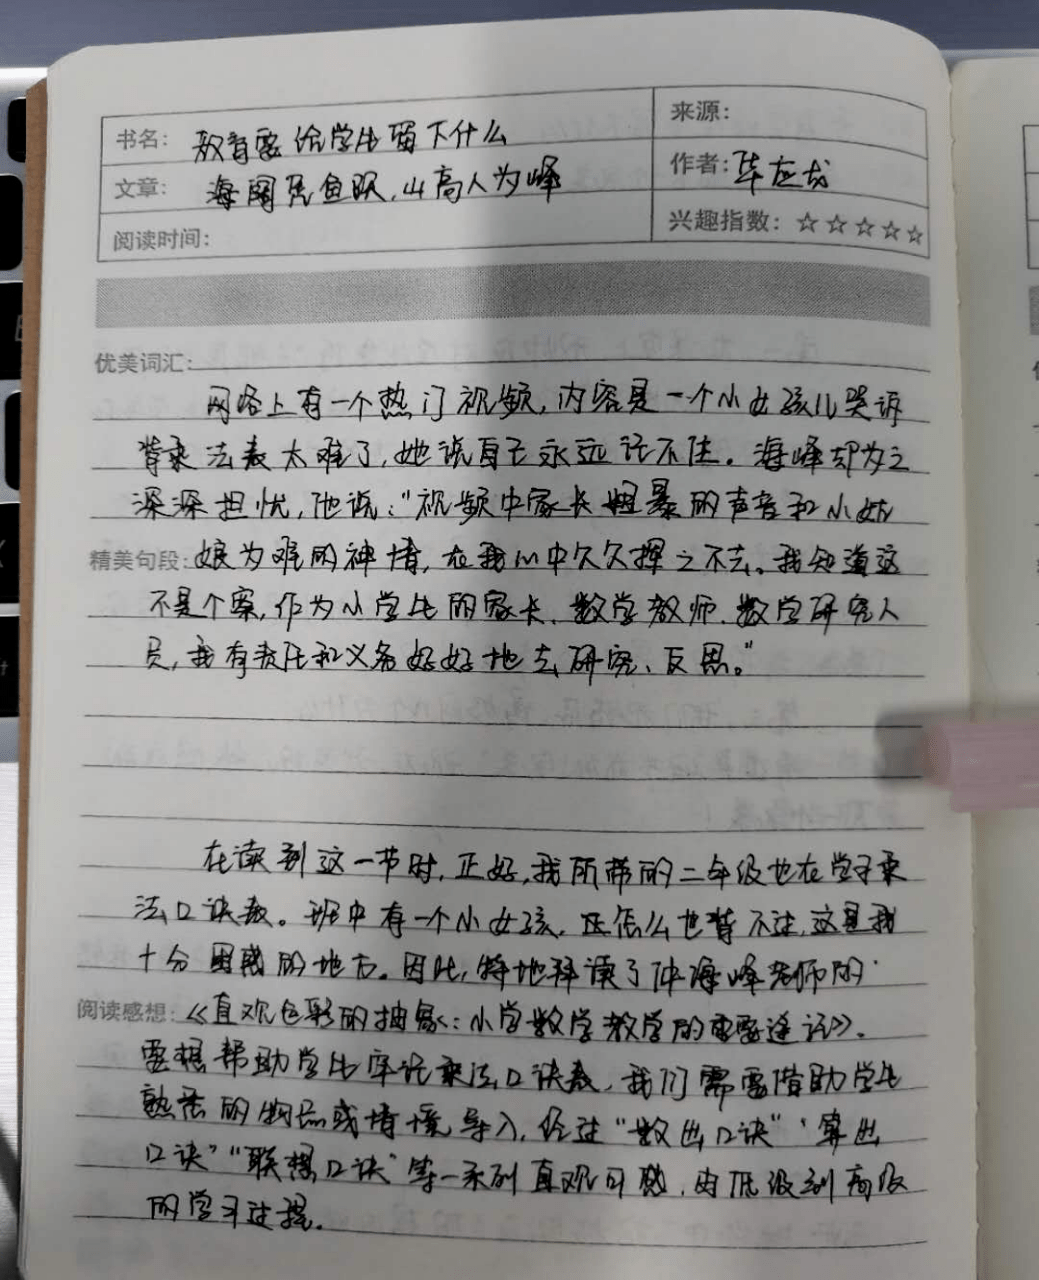 书名: 教育要给学生留下什么
来源:
文章: 海阔凭鱼跃,山高人为峰
作者: 华应龙
阅读时间:
兴趣指数: ☆☆☆☆☆
优美词汇:
网络上有一个热门视频,内容是一个小女孩儿哭诉
背乘法表太难了,她说自己永远记不住。海峰却为之
深深担忧,他说:“视频中家长粗暴的声音和小姑
精美句段: 娘为难的神情,在我心中久久挥之不去。我知道这
不是个案,作为小学生的家长、数学教师、数学研究人
员,我有责任和义务好好地去研究、反思。”
在读到这一节时,正好,我所带的二年级也在学习乘
法口诀表。班中有一个小女孩,正怎么也背不过,这是我
十分困惑的地方。因此,特地拜读了仲海峰老师的
阅读感想: 《直观色彩的抽象:小学数学教学的重要途径》。
要想帮助学生牢记乘法口诀表,我们需要借助学生
熟悉的物品或情境导入,经过“数出口诀”“算出
口诀”“联想口诀”等一系列直观可感,由低级到高级
的学习过程。